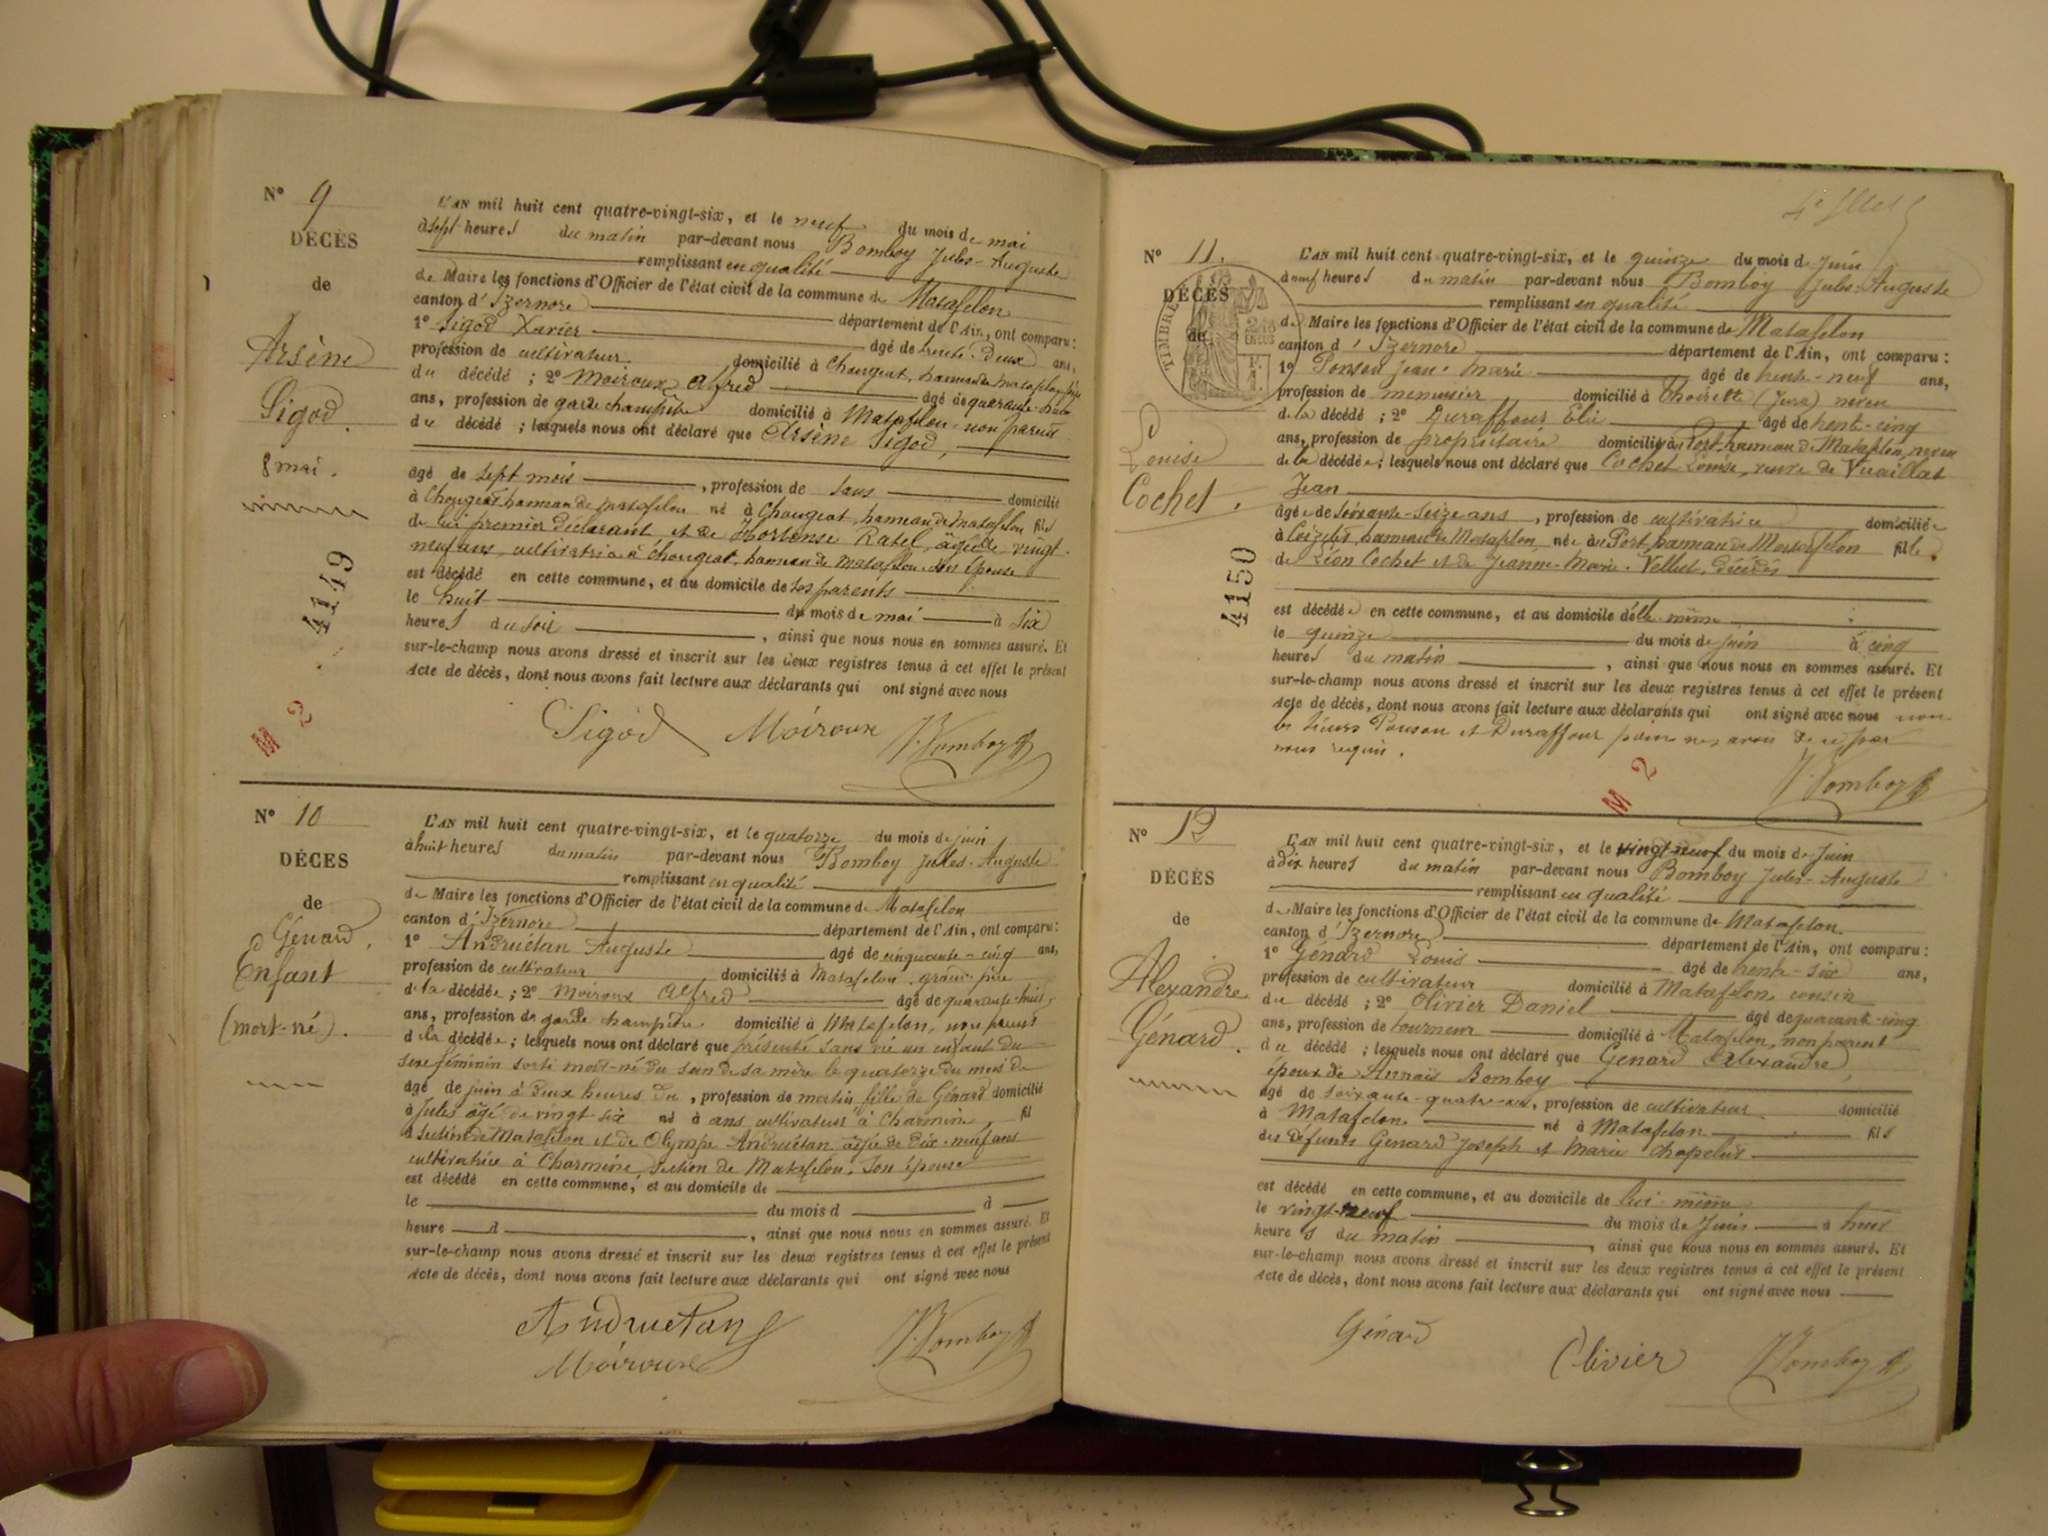 N° 9
DÉCÈS
de
Arsène
Sigod.
8 mai.
4149
M 2
L'AN mil huit cent quatre-vingt-six, et le neuf du mois de mai
à sept heures du matin par-devant nous Bomboy Jules-Auguste
remplissant en qualité
de Maire les fonctions d'Officier de l'état civil de la commune de Matafelon
canton d'Izernore département de l'Ain, ont comparu:
1° Sigod Xavier âgé de trente-deux ans,
profession de cultivateur domicilié à Chougeat, hameau de Matafelon, père
du décédé; 2° Moiroux Alfred âgé de quarante-huit
ans, profession de garde champêtre domicilié à Matafelon, non parent
du décédé; lesquels nous ont déclaré que Arsène Sigod,
âgé de sept mois, profession de sans domicilié
à Chougeat hameau de Matafelon né à Chougeat, hameau de Matafelon fils
de lui premier déclarant et de Hortense Ratel, âgée de vingt-
neuf ans, cultivatrice à Chougeat, hameau de Matafelon son épouse
est décédé en cette commune, et au domicile de ses parents
le huit du mois de mai à six
heures du soir, ainsi que nous nous en sommes assuré. Et
sur-le-champ nous avons dressé et inscrit sur les deux registres tenus à cet effet le présent
acte de décès, dont nous avons fait lecture aux déclarants qui ont signé avec nous
Sigod Moiroux J. Bomboy
N° 10
DÉCÈS
de
Génard
Enfant
(mort-né).
L'AN mil huit cent quatre-vingt-six, et le quatorze du mois de juin
à huit heures du matin par-devant nous Bomboy Jules-Auguste
remplissant en qualité
de Maire les fonctions d'Officier de l'état civil de la commune de Matafelon
canton d'Izernore département de l'Ain, ont comparu:
1° Andruétan Auguste âgé de cinquante-cinq ans,
profession de cultivateur domicilié à Matafelon, grand-père
de la décédée; 2° Moiroux Alfred âgé de quarante-huit
ans, profession de garde champêtre domicilié à Matafelon, non parent
de la décédée; lesquels nous ont déclaré que présenté sans vie un enfant du
sexe féminin sorti mort-né du sein de sa mère le quatorze du mois de
âgé de juin à deux heures du, profession de matin fille de Génard domicilié
à Jules âgé de vingt six né à ans cultivateur à Charmine, fil
section de Matafelon et de Olympe Andruétan âgée de dix-neuf ans
cultivatrice à Charmine, section de Matafelon, son épouse
est décédé en cette commune, et au domicile de
le du mois d à
heure d, ainsi que nous nous en sommes assuré. Et
sur-le-champ nous avons dressé et inscrit sur les deux registres tenus à cet effet le présent
acte de décès, dont nous avons fait lecture aux déclarants qui ont signé avec nous
Andruétan J. Bomboy
Moiroux
N° 11.
DÉCÈS
de
TIMBRE
Louise
Cochet.
4150
L'AN mil huit cent quatre-vingt-six, et le quinze du mois de juin
à neuf heures du matin par-devant nous Bomboy Jules-Auguste
remplissant en qualité
de Maire les fonctions d'Officier de l'état civil de la commune de Matafelon
canton d'Izernore département de l'Ain, ont comparu:
1° Ponson Jean-Marie âgé de trente-neuf ans,
profession de menuisier domicilié à Thoirette (Jura) neveu
de la décédé; 2° Duraffour Elie âgé de trente-cinq
ans, profession de propriétaire domicilié à Port, hameau de Matafelon, neveu
de la décédée; lesquels nous ont déclaré que Cochet Louise, veuve de Vuaillat
Jean
âgée de soixante-seize ans, profession de cultivatrice domiciliée
à hameau de Matafelon, née au Port hameau de Matafelon fille
de Léon Cochet et de Jeanne-Marie Vellut, décédés
est décédée en cette commune, et au domicile d'elle-même
le quinze du mois de juin à cinq
heures du matin, ainsi que nous nous en sommes assuré. Et
sur-le-champ nous avons dressé et inscrit sur les deux registres tenus à cet effet le présent
acte de décès, dont nous avons fait lecture aux déclarants qui ont signé avec nous non
les sieurs Ponson et Duraffour pour de ce par
nous requis.
M 2
J. Bomboy
N° 12
DÉCÈS
de
Alexandre
Génard.
L'AN mil huit cent quatre-vingt-six, et le vingt-neuf du mois de Juin
à dix heures du matin par-devant nous Bomboy Jules-Auguste
remplissant en qualité
de Maire les fonctions d'Officier de l'état civil de la commune de Matafelon
canton d'Izernore département de l'Ain, ont comparu:
1° Génard Louis âgé de trente-six ans,
profession de cultivateur domicilié à Matafelon cousin
du décédé; 2° Olivier Daniel âgé de quarante-cinq
ans, profession de tourneur domicilié à Matafelon, non parent
du décédé; lesquels nous ont déclaré que Génard Alexandre,
époux de Annaïs Bomboy
âgé de soixante-quatre ans, profession de cultivateur domicilié
à Matafelon né à Matafelon fils
des défunts Génard Joseph et Marie Chapelut
est décédé en cette commune, et au domicile de lui-même
le vingt-neuf du mois de Juin à huit
heures du matin, ainsi que nous nous en sommes assuré. Et
sur-le-champ nous avons dressé et inscrit sur les deux registres tenus à cet effet le présent
acte de décès, dont nous avons fait lecture aux déclarants qui ont signé avec nous
Génard Olivier J. Bomboy